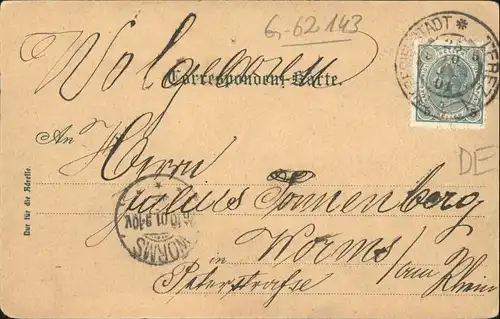 6-62143
Wolgeboren
Correspondenz-Karte.
An Herrn
Julius Sonnenberg
in Worms
/am Rhein
Peterstrasse
Nur für die Adresse.
WORMS
DE